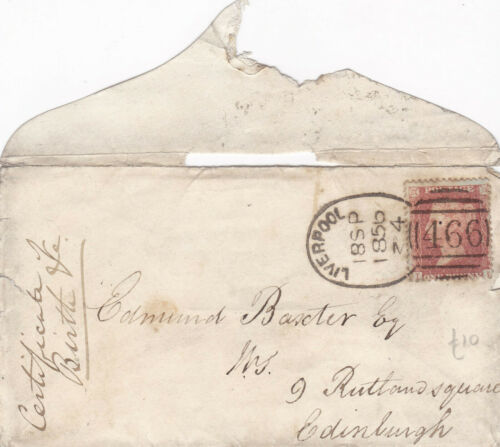 LIVERPOOL
18 SP
1856
Z 4
466
Certificate of
Birth &c.
Edmund Baxter Esq
W.S.
9 Rutland square
Edinburgh
£10